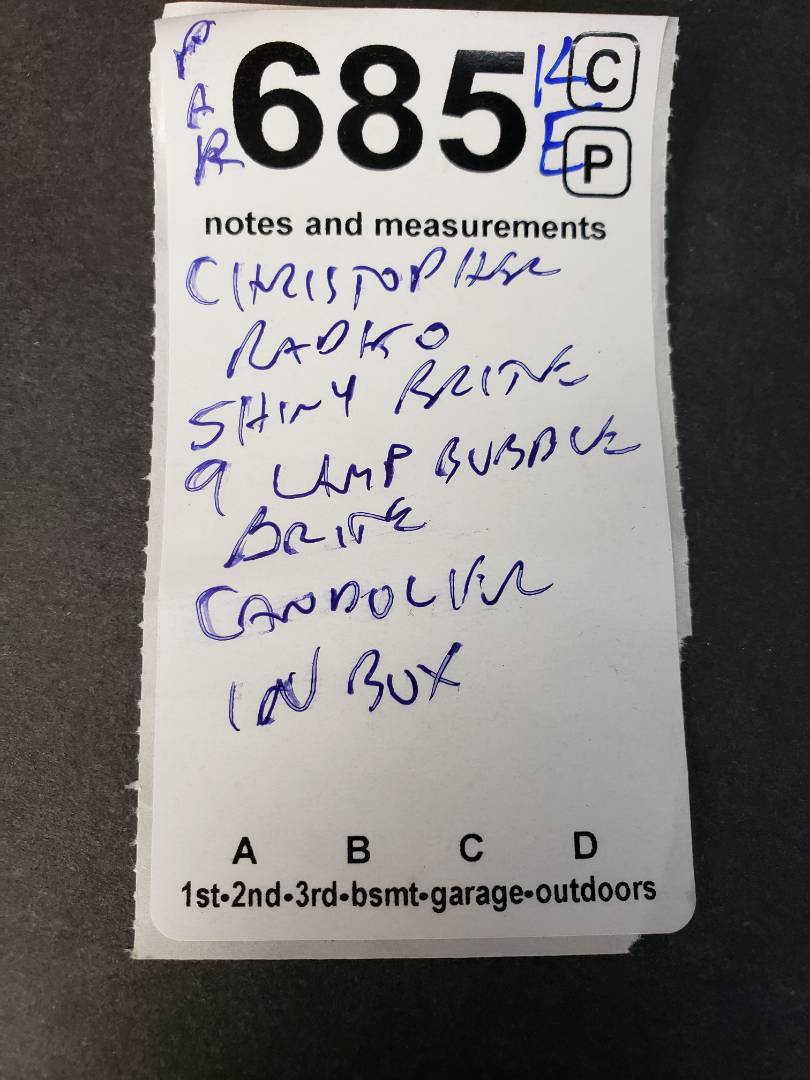 PAR
685
KE
C
P
notes and measurements
CHRISTOPHER
RADKO
SHINY BRITE
9 LAMP BUBBLE
BRITE
CANDOLIER
IN BOX
A B C D
1st•2nd•3rd•bsmt•garage•outdoors